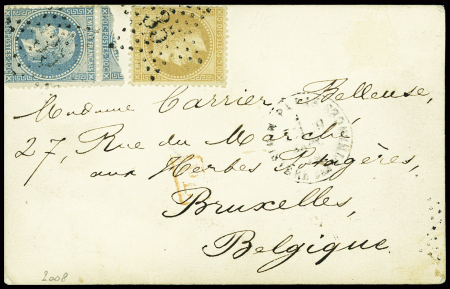 35
35
Madame Carrier, Belleuse,
27, Rue du Marché
aux Herbes Potagères,
Bruxelles,
Belgique.
2008